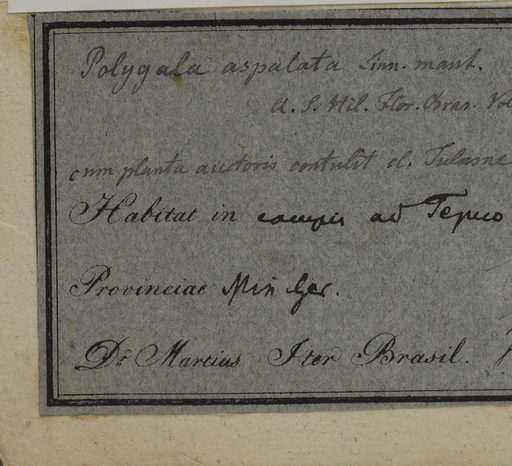 Polygala aspalata Linn. mant.
A. S. Hil. Flor. Bras. Vol
cum planta auctoris contulit cl. Tulasne
Habitat in campis ad Tejuco
Provinciae Min Ger.
Dr. Martius Iter Brasil.